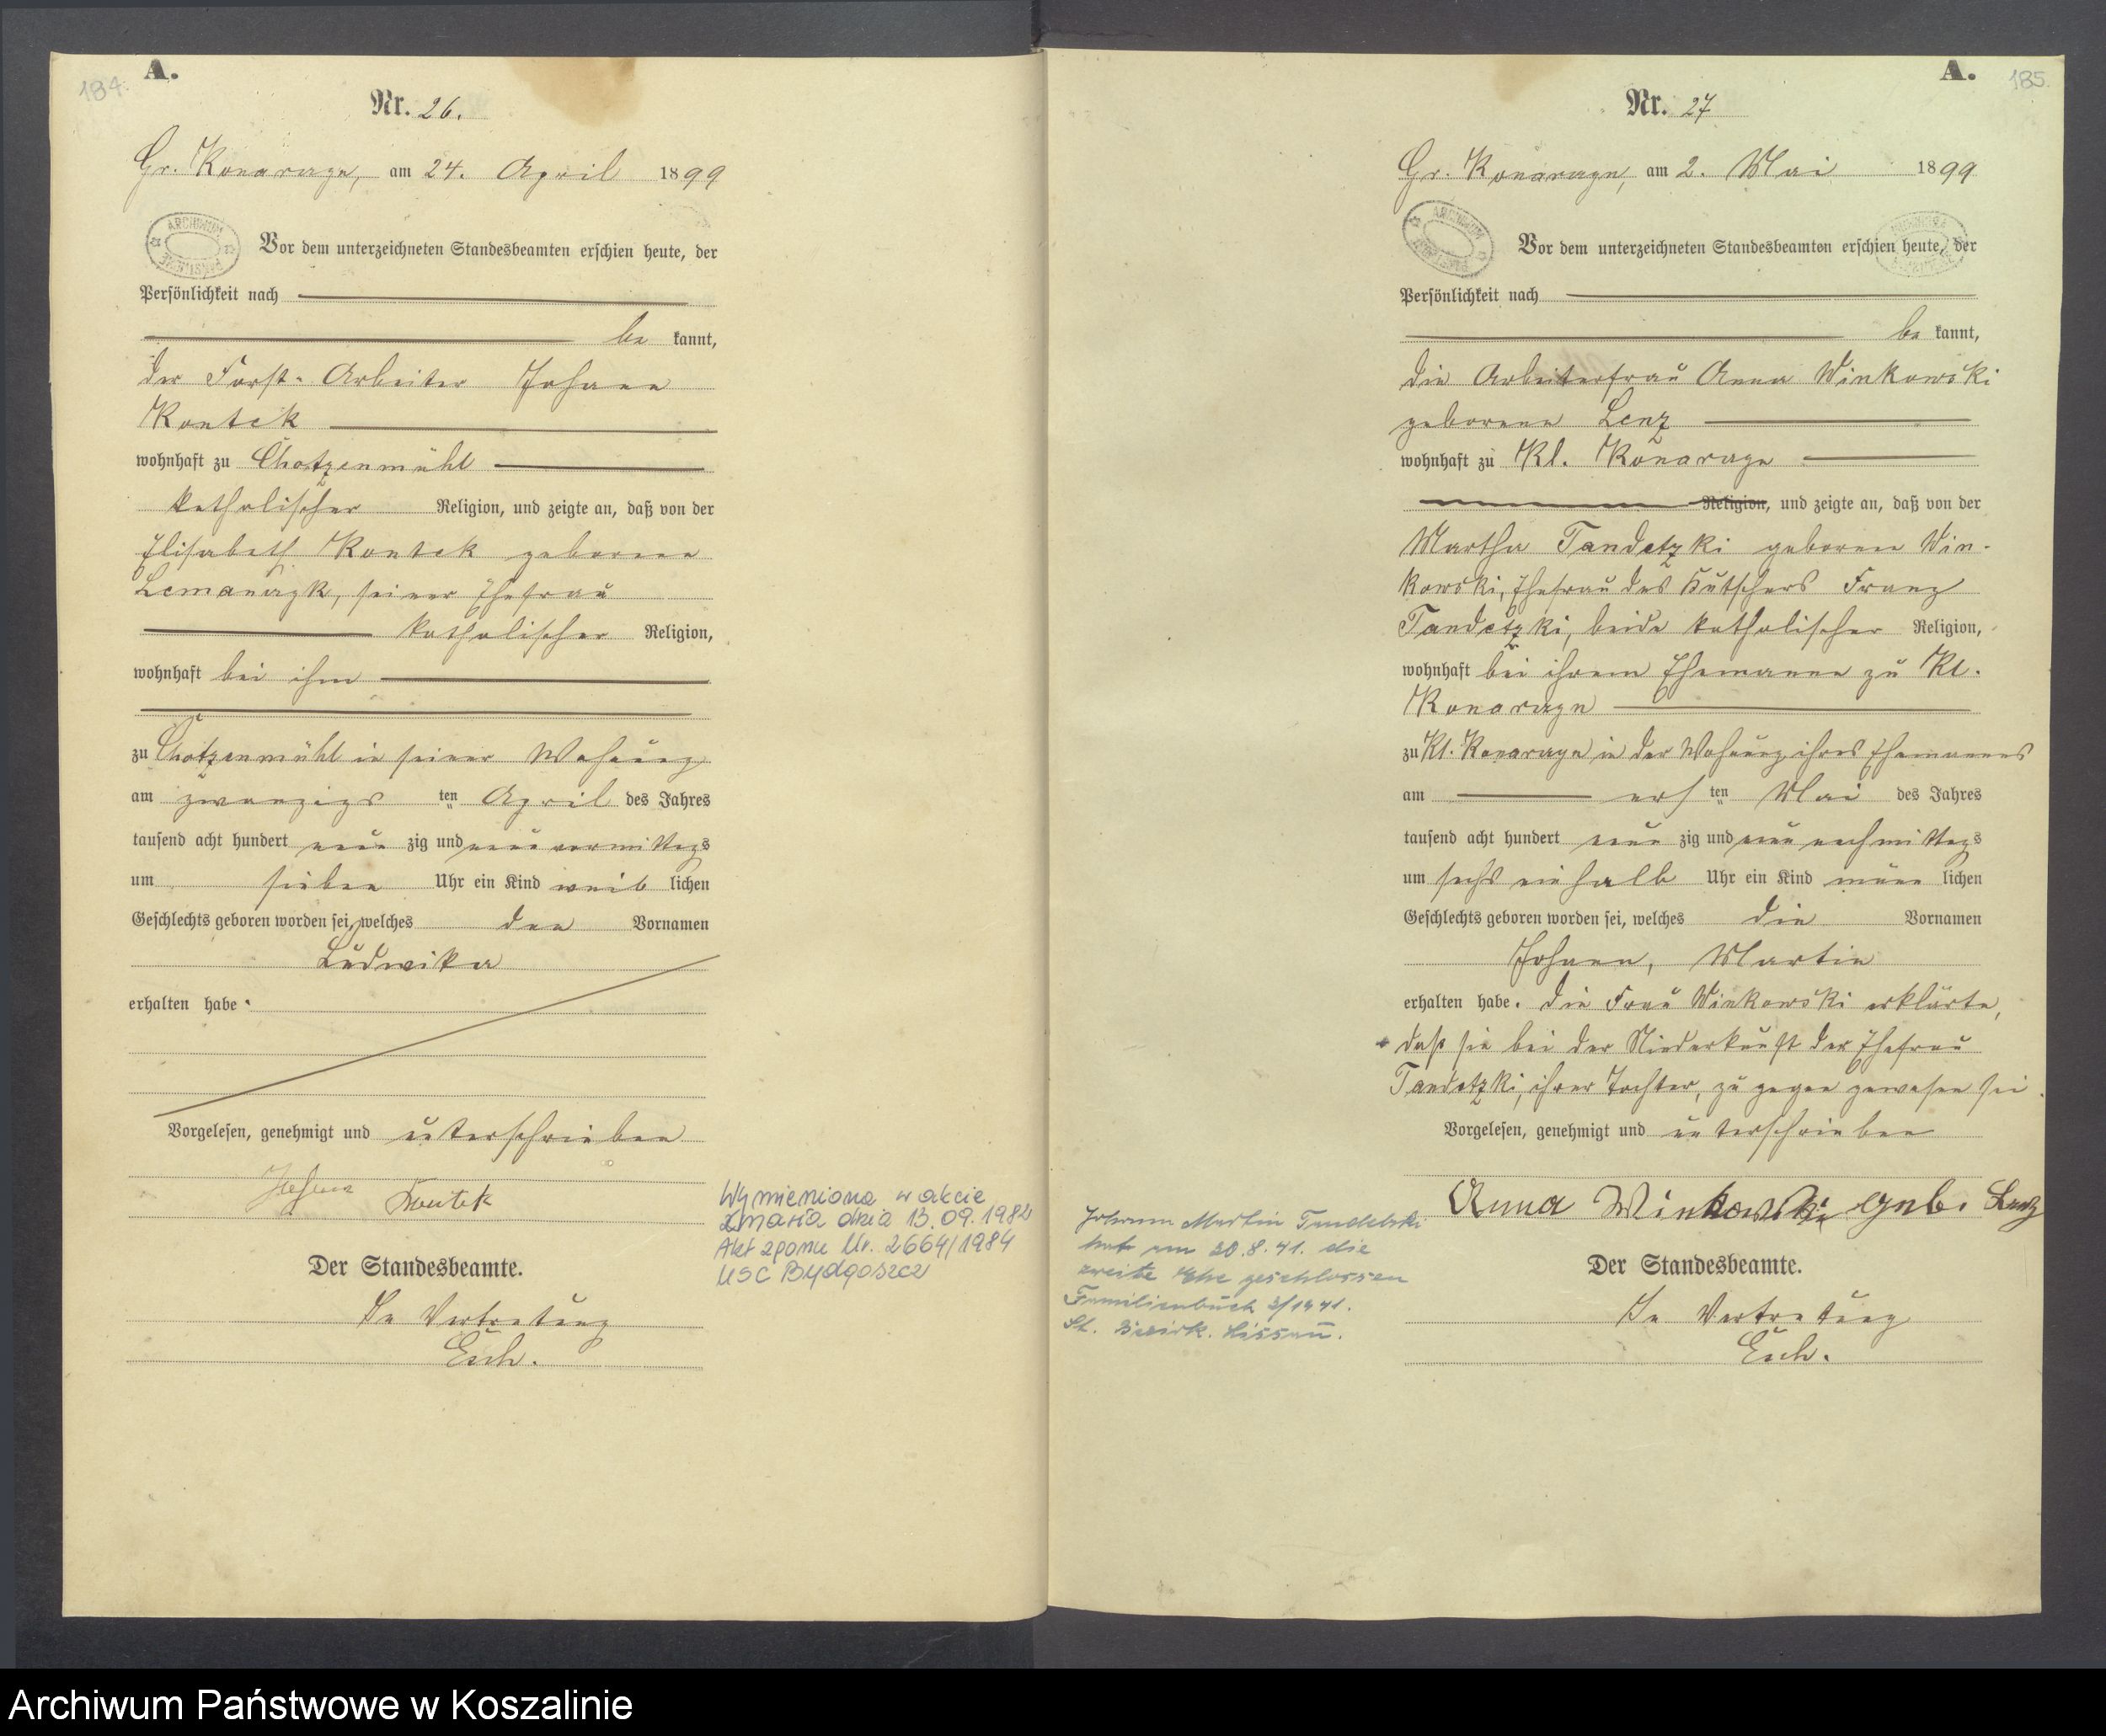 184.
A.
Nr. 26.
Gr. Konarczyn, am 24. April 1899
ARCHIWUM PAŃSTWOWE
Vor dem unterzeichneten Standesbeamten erschien heute, der
Persönlichkeit nach
be kannt,
der Forst-Arbeiter Johann
Kontek
wohnhaft zu Chotzenmühl
katholischer Religion, und zeigte an, daß von der
Elisabeth Kontek geborene
Lemanczyk, seiner Ehefrau
katholischer Religion,
wohnhaft bei ihm
zu Chotzenmühl in seiner Wohnung
am zwanzigs ten April des Jahres
tausend acht hundert neun zig und neun vormittags
um sieben Uhr ein Kind weib lichen
Geschlechts geboren worden sei, welches den Vornamen
Ludwika
erhalten habe.
Vorgelesen, genehmigt und unterschrieben
Johann Kontek
Wymieniona w akcie
zmarła dnia 13.09.1984
Akt zgonu Nr. 2664/1984
USC Bydgoszcz
Der Standesbeamte.
In Vertretung
A.
185.
Nr. 27
Gr. Konarczyn, am 2. Mai 1899
ARCHIWUM PAŃSTWOWE
Vor dem unterzeichneten Standesbeamten erschien heute, der
Persönlichkeit nach
be kannt,
die Arbeiterfrau Anna Winkowski
geborene Lenz
wohnhaft zu Kl. Konarczyn
Religion, und zeigte an, daß von der
Martha Tandetzki geborene Win-
kowski, Ehefrau des Kutschers Franz
Tandetzki, beide katholischer Religion,
wohnhaft bei ihrem Ehemanne zu Kl.
Konarczyn
zu Kl. Konarczyn in der Wohnung ihres Ehemannes
am ers ten Mai des Jahres
tausend acht hundert neun zig und neun nachmittags
um sechs ein halb Uhr ein Kind männ lichen
Geschlechts geboren worden sei, welches die Vornamen
Johann, Martin
erhalten habe. Die Frau Winkowski erklärte,
daß sie bei der Niederkunft der Ehefrau
Tandetzki, ihrer Tochter, zu gegen gewesen sei.
Vorgelesen, genehmigt und unterschrieben
Anna Winkowski geb. Lenz
Johann Martin Tandetzki
hat am 30.8.41. die
zweite Ehe geschlossen
Familienbuch 3/1941.
St. Bezirk. Lissau.
Der Standesbeamte.
In Vertretung
Archiwum Państwowe w Koszalinie